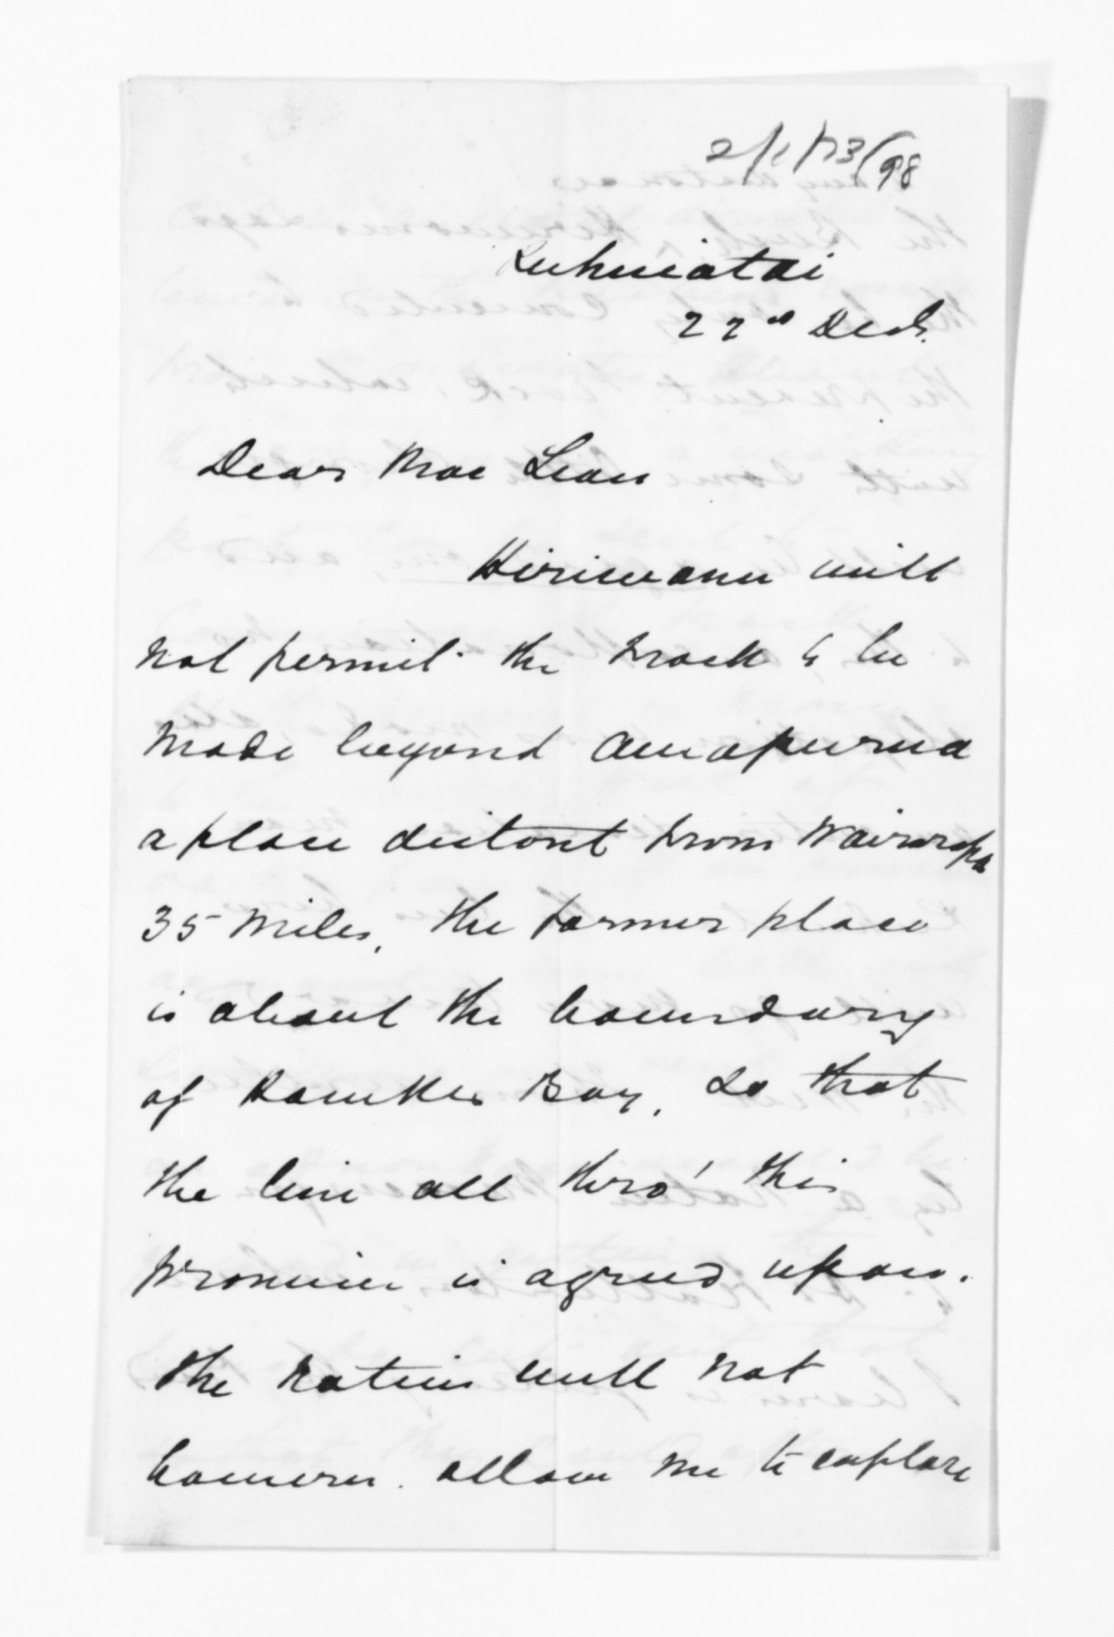 2/1/73/98
22nd Decr.
Dear Mac Lean
Hirimana will
not permit the track to be
made beyond
a place distant from Wairarapa
35 miles, the former place
is about the boundary
of Hawkes Bay, so that
the line all thro' this
province is agreed upon.
The natives will not
however allow me to explore